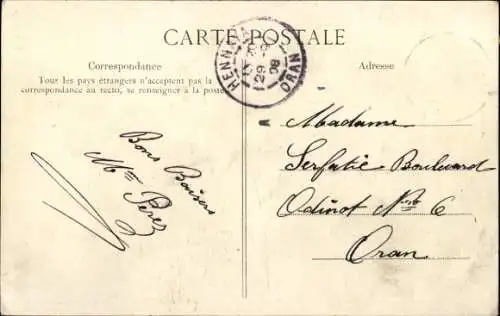 CARTE POSTALE
Correspondance
Tous les pays étrangers n'acceptent pas la
correspondance au recto, se renseigner à la poste
Adresse
HENNAYA
29
08
ORAN
Bons Baisers
Mme Perez
Madame
Serfatie Boulevard
Odinot No 6
Oran